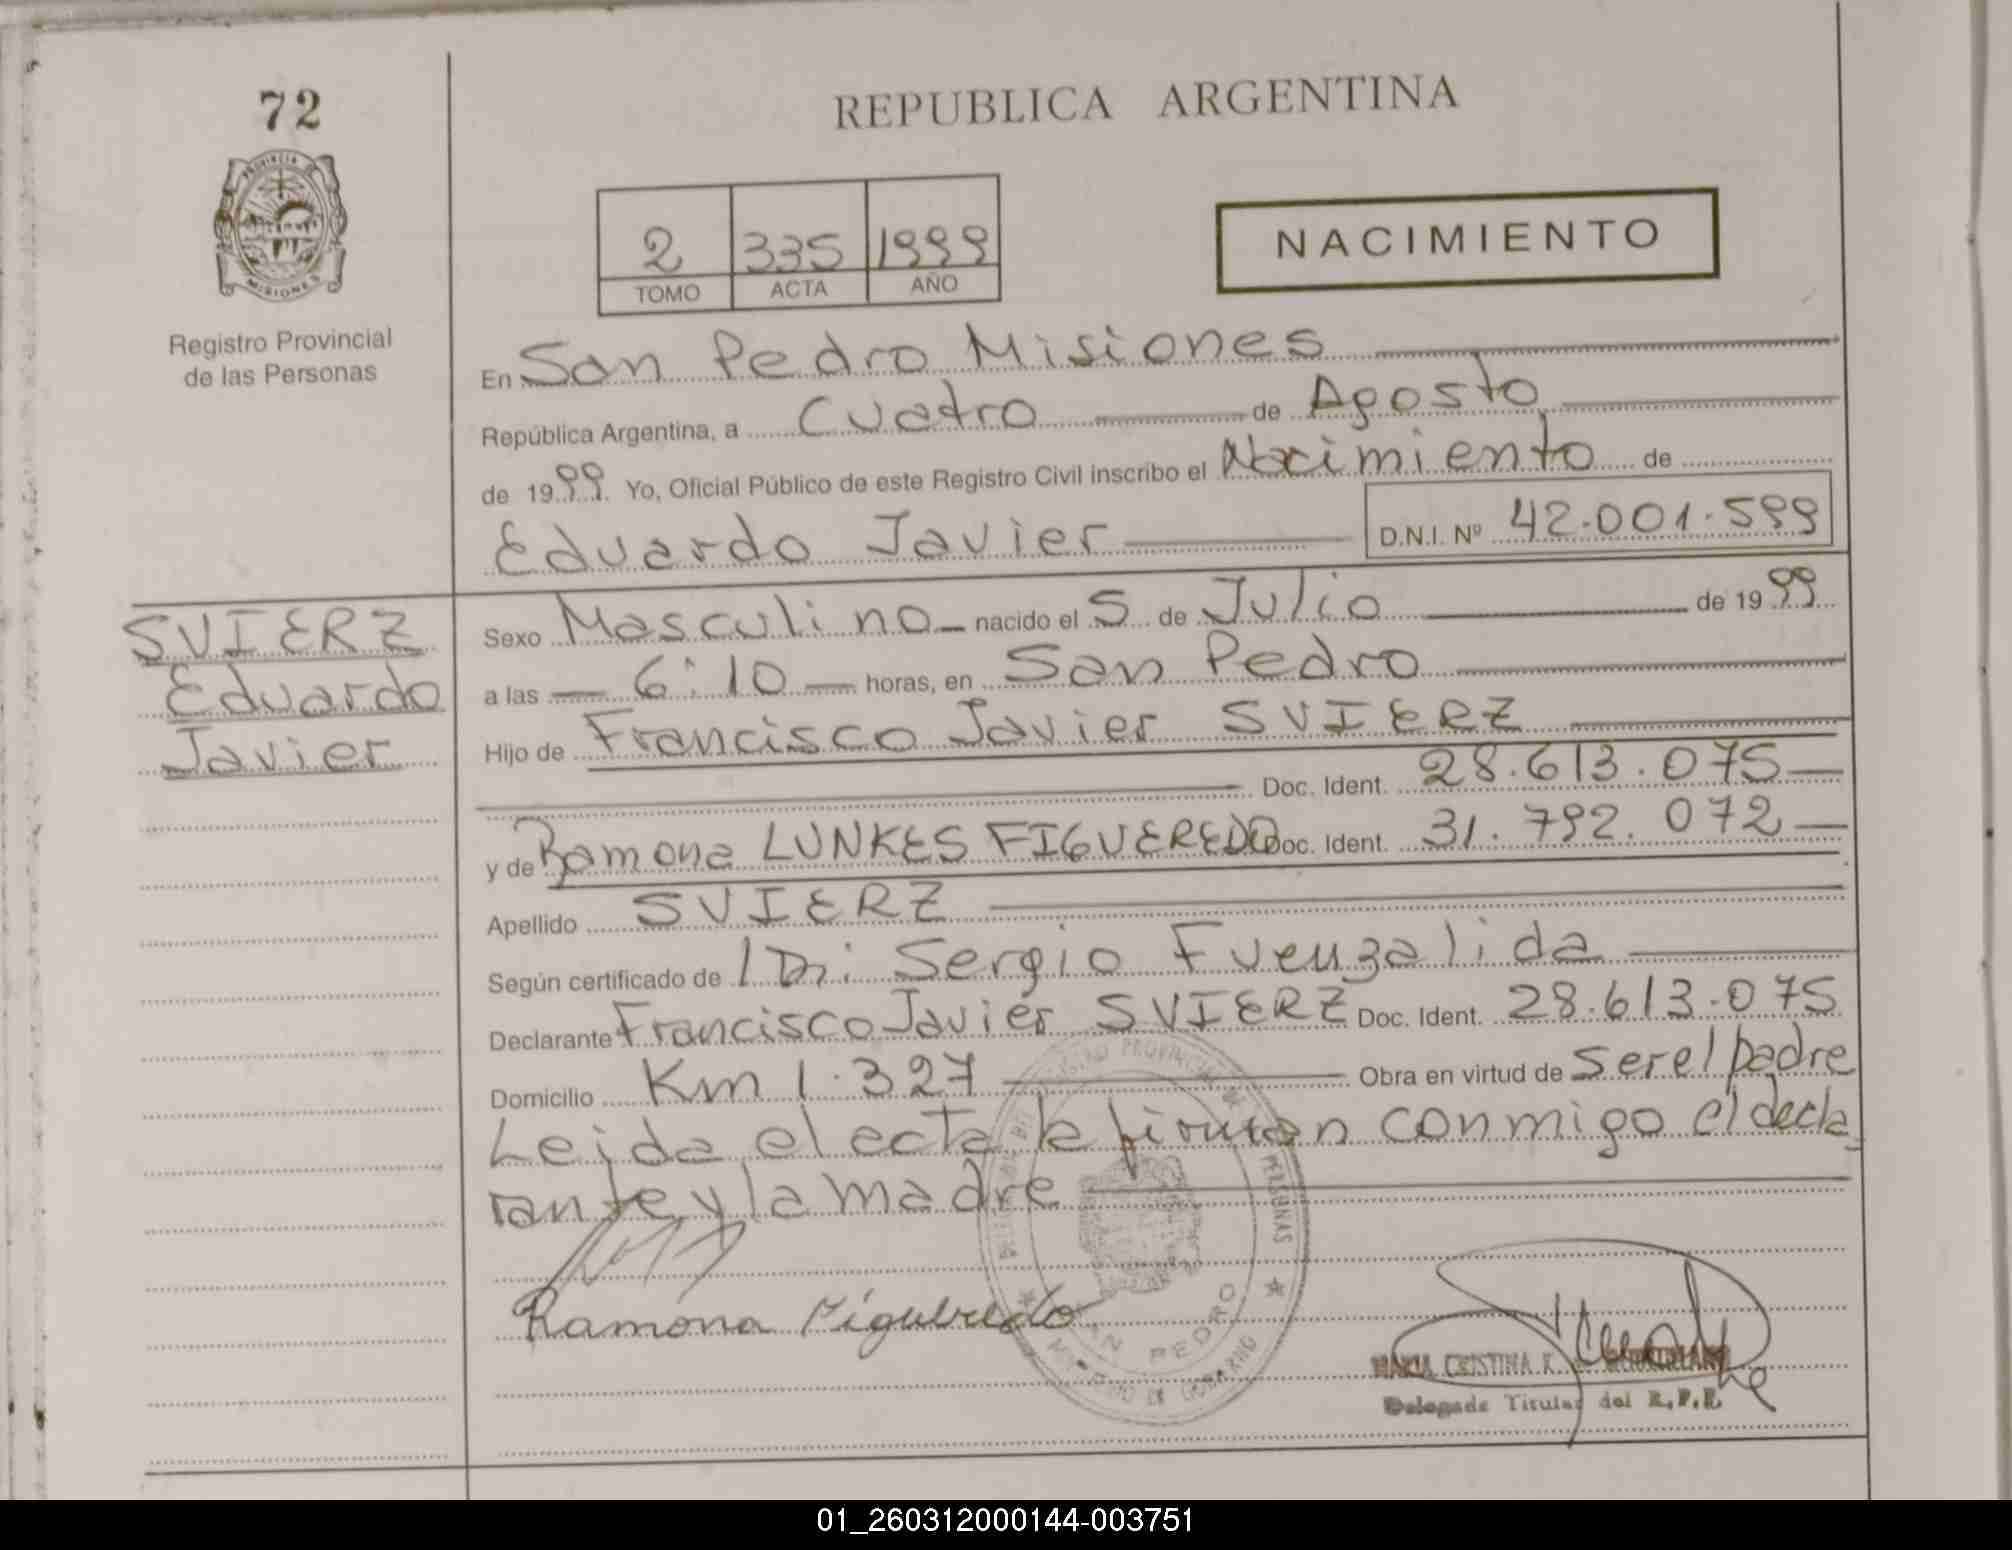 72
PROVINCIA DE
MISIONES
Registro Provincial
de las Personas
REPUBLICA ARGENTINA
2 335 1999
TOMO ACTA AÑO
NACIMIENTO
En San Pedro Misiones
República Argentina, a Cuatro de Agosto
de 1999. Yo, Oficial Público de este Registro Civil inscribo el Nacimiento de
Eduardo Javier D.N.I. Nº 42.001.599
SVIERZ
Eduardo
Javier
Sexo Masculino nacido el 5 de Julio de 1999
a las 6:10 horas, en San Pedro
Hijo de Francisco Javier SVIERZ
Doc. Ident. 28.613.075
y de Ramona LUNKES FIGUEREDO Doc. Ident. 31.792.072
Apellido SVIERZ
Según certificado de Dr: Sergio Fuenzalida
Declarante Francisco Javier SVIERZ Doc. Ident. 28.613.075
Domicilio Km 1.327 Obra en virtud de ser el padre
Leida el acta la firman conmigo el decla
rante y la madre
Ramona Figueredo
SAN PEDRO
MINISTERIO DE GOBIERNO
MARIA CRISTINA K.
Delegada Titular del R.P.P.
01_260312000144-003751